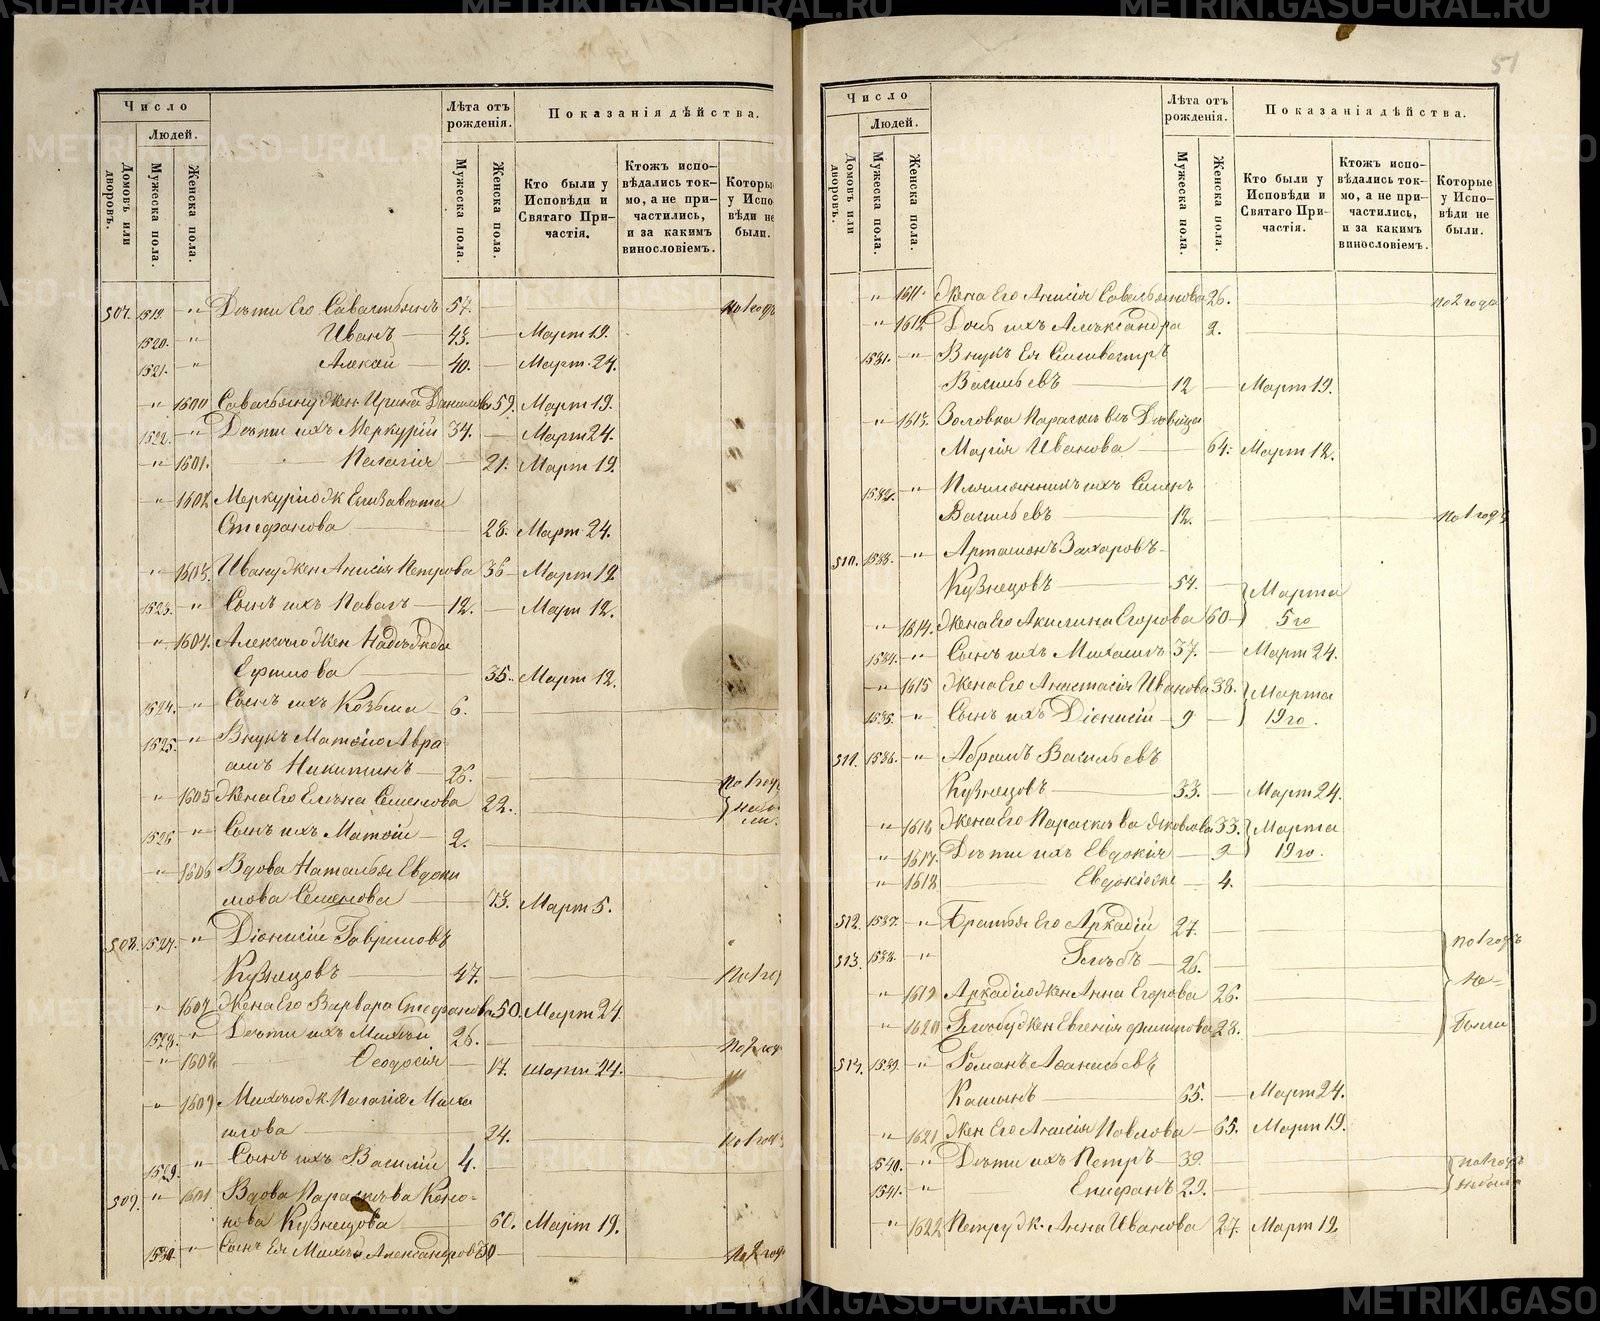 METRIKI.GASU-URAL.RU
Число
Людей.
Домовъ или дворовъ.
Мужеска пола.
Женска пола.
Лѣта отъ рожденія.
Мужеска пола.
Женска пола.
Показанія дѣйства.
Кто были у Исповѣди и Святаго Причастія.
Ктожъ исповѣдались токмо, а не причастились, и за какимъ винословіемъ.
Которые у Испо-
вѣди не
были.
507. 1519. " Дѣти Его Савастьянъ 57. по1году
1520. " Иванъ 43. Март 19.
1521. " 40. Март 24.
" 1600 жен. Ирина 59. Март 19.
1522. " Дѣти ихъ Меркурій 34. Март 24.
" 1601. Пелагія 21. Март 19.
" 1602 Меркурію ж Елизавета
Стефанова 28. Март 24.
" 1603. Ивану жен Анисія Петрова 36 Март 19.
1523. " Сынъ ихъ Павелъ 12. Март 12.
" 1604. Алексѣю жен Надѣжда
Ефимова 35. Март 12.
1524. " Сынъ ихъ Козьма 6.
1525. " Внукъ Матвію Авра
амъ Никитинъ 26. по1году
" 1605 Жена Его Елена Семенова 22.
1526 " Сынъ ихъ Матвій 2.
" 1606 Вдова Наталья Евдоки
мова Семенова 73. Март 5.
508. 1527. " Діонисій Гавриловъ
Кузнецовъ 47.
" 1607 Жена Его Варвара Стефанова 50. Март 24
1528. " Дѣти ихъ Михей 26.
" 1608 Ѳеодосія 17. март 24.
" 1609 Михѣю ж. Пелагія Миха
илова 24. по1году
1529. " Сынъ ихъ Василій 4.
509. " 1601 Вдова Параскева Коно-
нова Кузнецова 60. Март 19.
1530. " Сынъ Ея Михей Александровъ 30
51
Число
Людей.
Домовъ или дворовъ.
Мужеска пола.
Женска пола.
Лѣта отъ рожденія.
Мужеска пола.
Женска пола.
Показанія дѣйства.
Кто были у Исповѣди и Святаго Причастія.
Ктожъ исповѣдались токмо, а не причастились, и за какимъ винословіемъ.
Которые у Исповѣди не были.
" 1611. Жена Его Анисія Савельянова 26. по2года
" 1612 Дочь ихъ Александра 2.
1531. " Внукъ Ея Силивестръ
Васильевъ 12 Март 19.
" 1613. Золовка Параскевѣ Дѣвица
Марія Иванова 64. Март 12.
1532. " Племянникъ ихъ Семенъ
Васильевъ 12. по1году
510. 1533. " Артамонъ Захаровъ
Кузнецовъ 54. Марта
" 1614. Жена Его Акилина Егорова 60 5го
1534. " Сынъ ихъ Михаилъ 37. Март 24.
" 1615 Жена Его Анастасія Иванова 38. Марта
1535. " Сынъ ихъ Діонисій 9 19го.
511. 1536. " Абрамъ Васильевъ
Кузнецовъ 33. Март 24.
" 1616 Жена Его Параскева Яковлева 33. Марта
" 1617. Дѣти ихъ Евдокія 9 19го.
" 1618 Евдокія же 4.
512. 1537. " Братья Его Аркадій 27. по1году
513. 1538. " Глѣбъ 26. не
" 1619 Аркадію жен Анна Егорова 26.
" 1620 Глѣбу жен Евгенія Филипова 28. были
514. 1539. " Романъ Аѳанасьевъ
65. Март 24.
" 1621 Жен Его Анисія Павлова 65. Март 19.
1540. " Дѣти ихъ Петръ 39. по1году
1541. " Епифанъ 29. небыли
" 1622 Петру ж. Анна Иванова 27. Март 19.